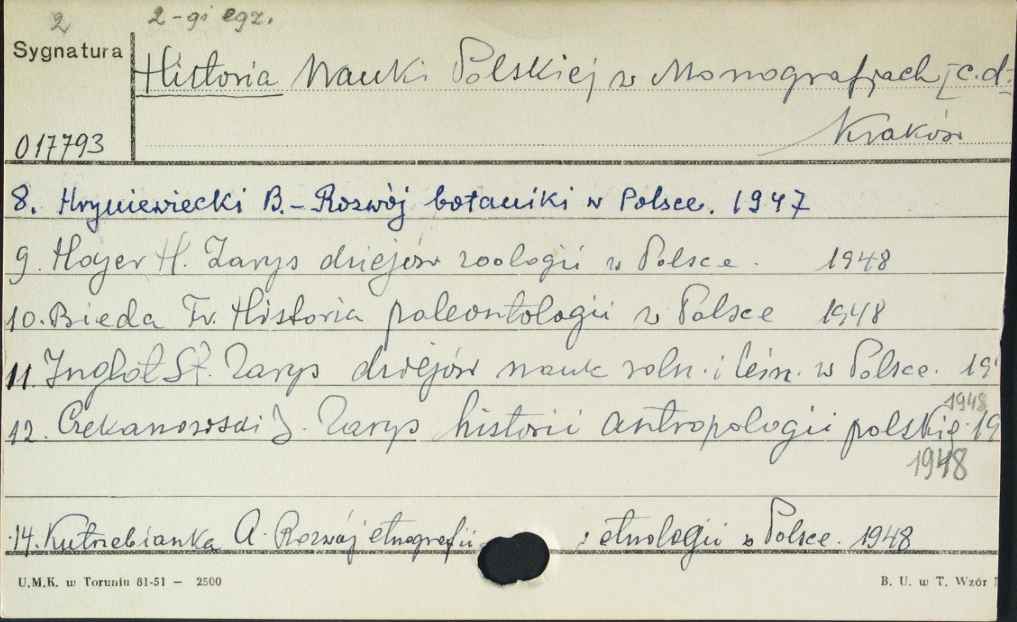 2 2-gi egz.
Sygnatura
Historia Nauki Polskiej w Monografjach [c.d.
Kraków
017793
8. Hryniewiecki B. - Rozwój botaniki w Polsce. 1947
9. Hoyer H. Zarys dziejów zoologii w Polsce. 1948
10. Bieda Fr. Historia paleontologii w Polsce 1948
11. Inglot St. Zarys dziejów nauk roln. i leśn. w Polsce. 19
1948
12. Czekanowski J. Zarys historii antropologii polskiej. 19
1948
14. Kutrzebianka A. Rozwój etnografii i etnologii w Polsce. 1948
U.M.K. w Toruniu 81-51 — 2500
B. U. w T. Wzór